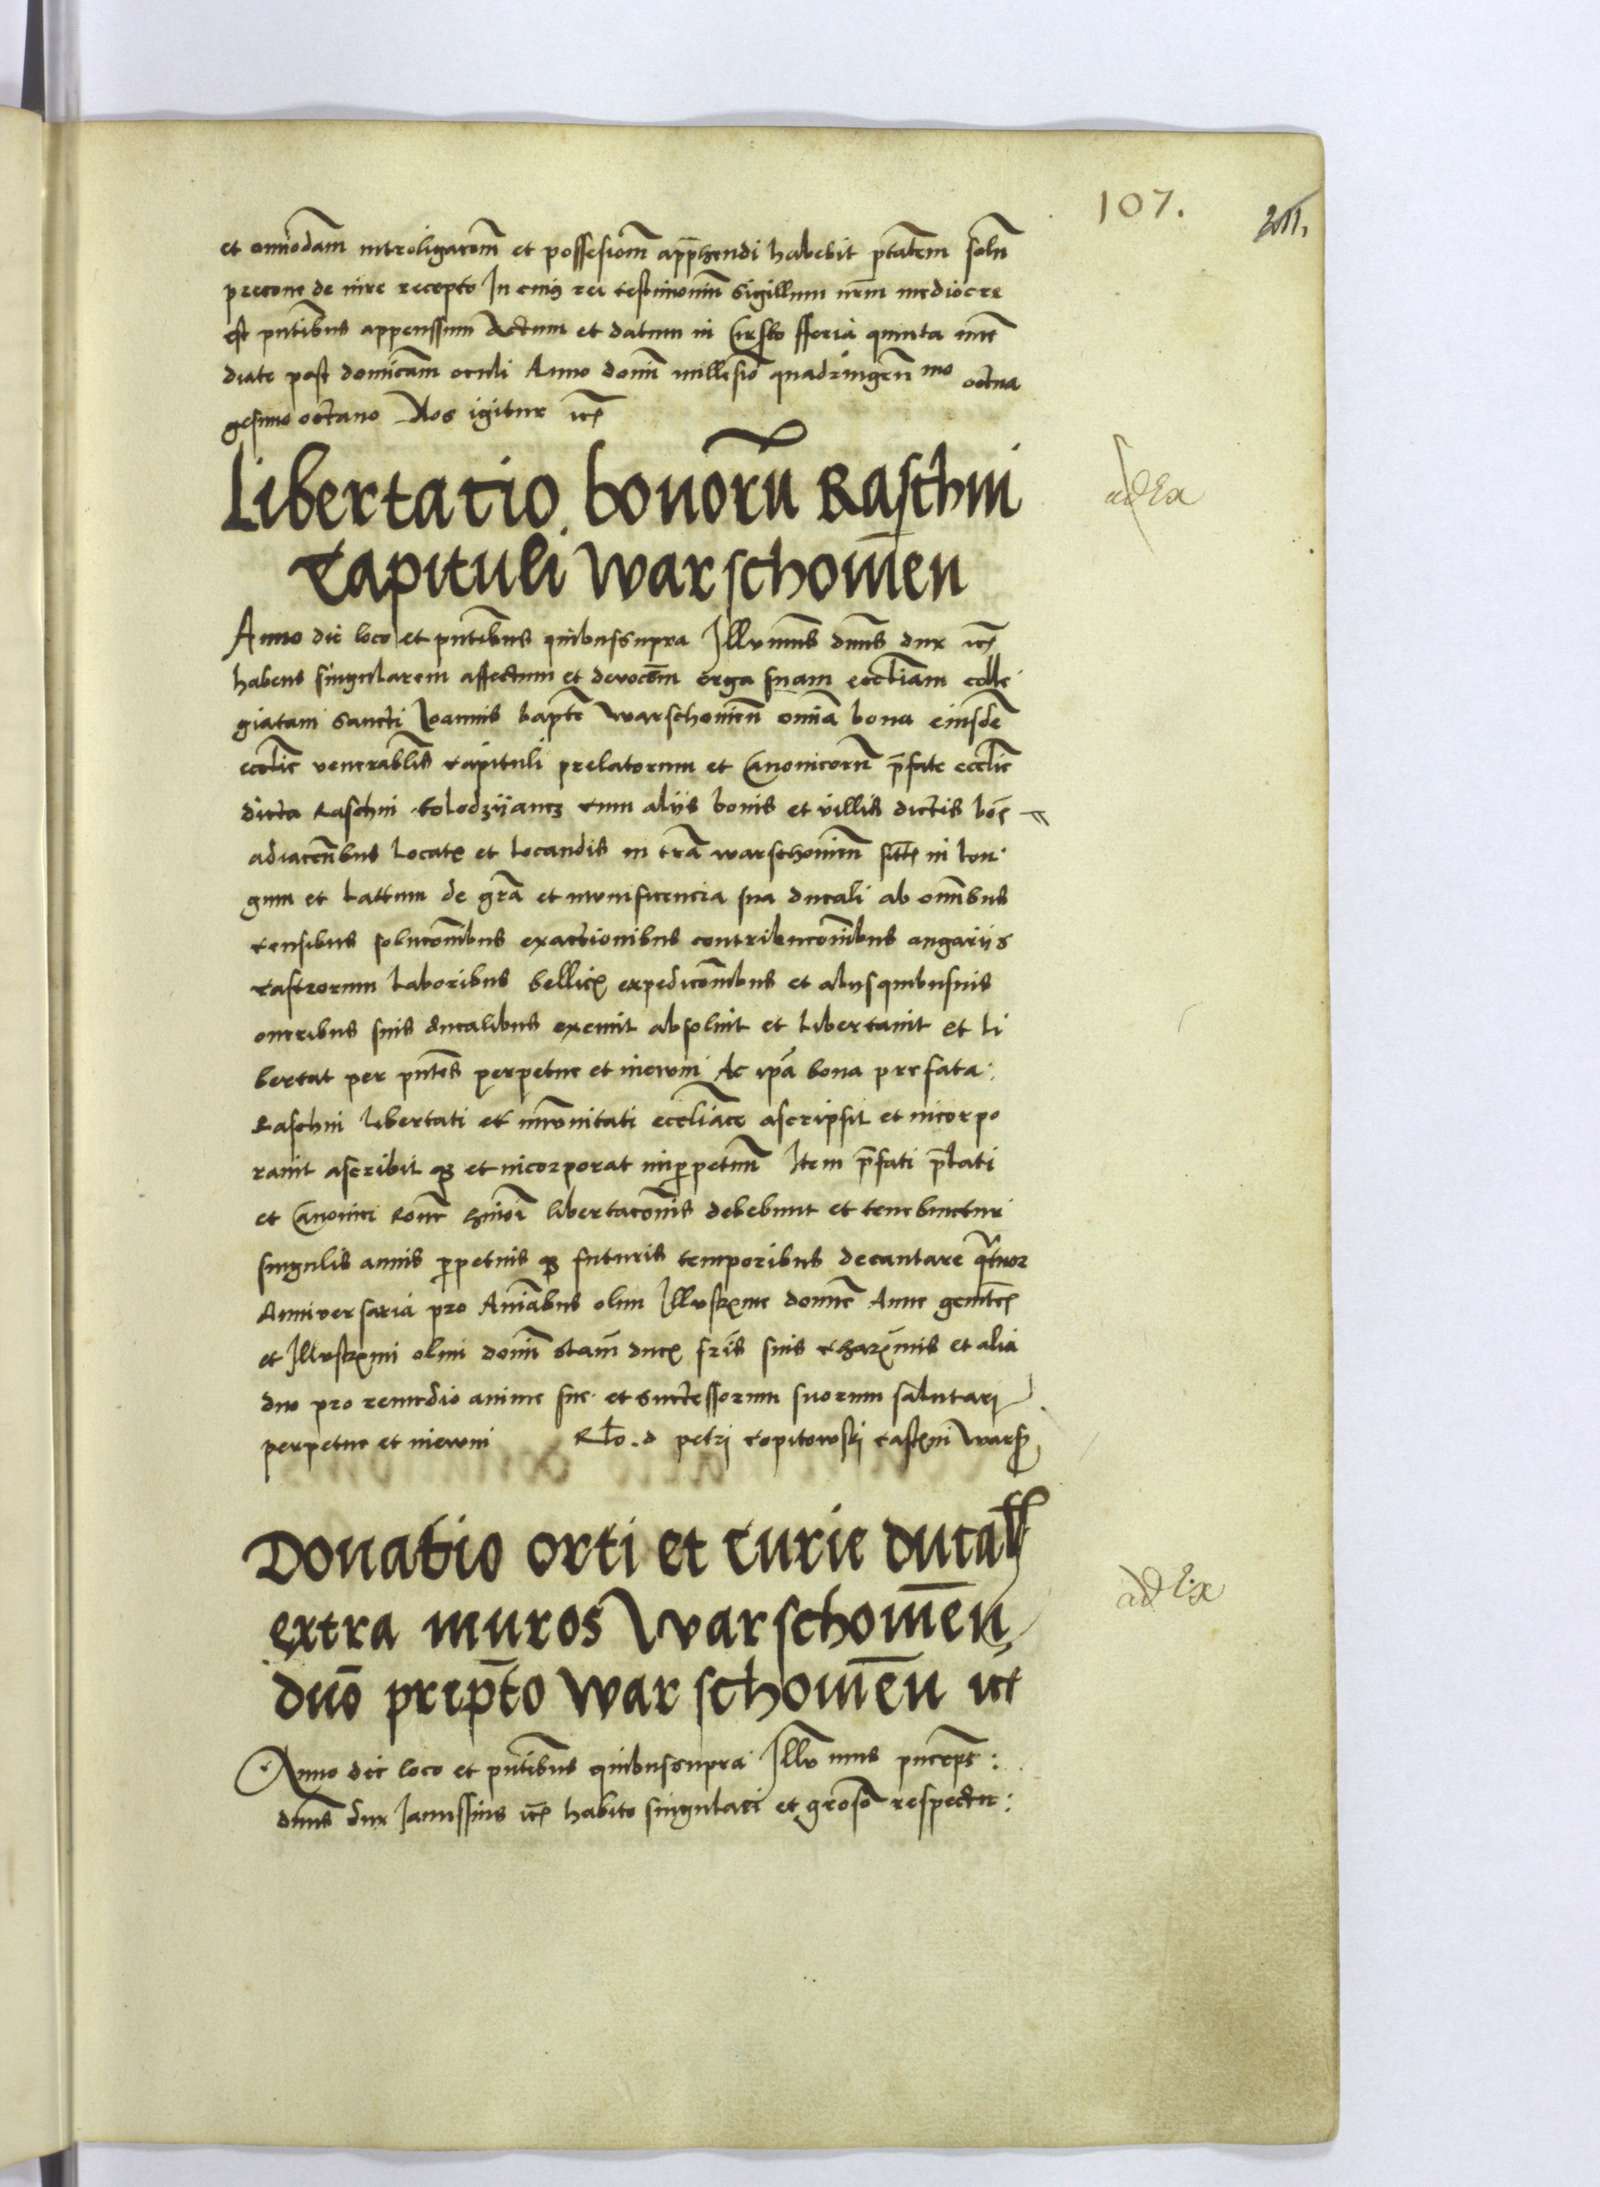 107.
211.
et omīodam introligacōm et possesiom apphendi habebit ptatem solū
precone de iure recepto In cuiꝯ rei testimoniū Sigillum nrm mediocre
est pntibus appenssum Actum et datum in Cirsko fferia quinta ime
diate post domicam oculi Anno domī millesio quadringen mo octua
gesimo octauo Nos igitur ꝛcꝭ
Libertatio bonorū Raschin
Capituli Warschouien
ad Ex
Anno die loco et pntibus quibussupra Illrmus dnus dux ꝛcꝭ
habens singularem affectum et deuocōem erga suam eccliam colle
giatam Sancti Joannis bapte Warschouien omia bona eiusdē
ecclie venerablis Capituli prelatorum et Canonicorū pfate ecclie
dicta Raschin Colodzÿancz cum alijs bonis et villis dictis boꝭ
adiacentibus locatꝭ et locandis in tra warschouien sittꝭ in lon
gum et lattum de gra et munificencia sua ducali ab omibus
censibus solucōnibus exactionibus contribucōnibus angarijs
castrorum laboribus bellicꝭ expedicōnibus et alijsquibusuis
oneribus suis ducalibus exemit absoluit et libertauit et li
bertat per pntes perpetue et in ewm Ac ipa bona prefata
Raschin libertati et imunitati eccliace ascripsit et incorpo
rauit ascribit qꝫ et incorporat inppetuū Item pfati plati
et Canonici Rone hmōi libertacōnis debebunt et tenebuntur
singulis annis ppetuis qꝫ futuris temporibus decantare qtuor
Anniuersaria pro Aniabus olim Illustrme domne Anne genitcꝭ
et Illustrmi olim domī Stani ducꝭ fris suis Charmis et alia
duo pro remedio anime sue et successorum suorum salutari
perpetue et in ewm Rlo. d petri Copitowski castni Warsꝭ
Donatio orti et Curie ducalꝭ
extra muros Warschouien
duo prepto Warschouien ꝛcꝭ
ad Ex
Anno die loco et pntibus quibussupra Illr mus pnceps
dnus dux Janussius ꝛcꝭ habito singulari et groso respectu